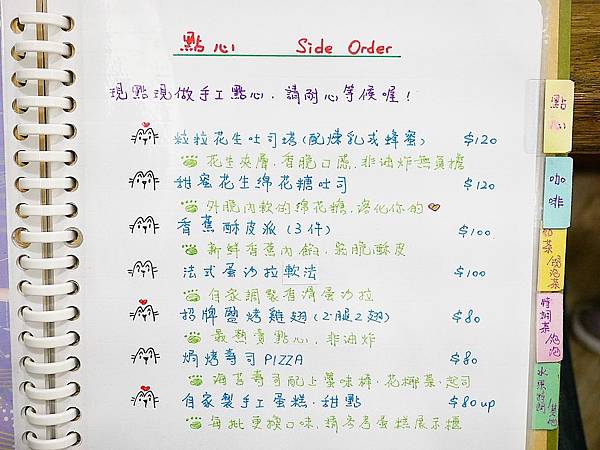 點心 Side Order
現點現做手工點心．請耐心等候喔！
粒粒花生吐司塔(配煉乳或蜂蜜) $120
花生夾層．香脆口感．非油炸無負擔
甜蜜花生綿花糖吐司 $120
外脆內軟的綿花糖．溶化你的
香蕉酥皮派(3件) $100
新鮮香蕉內餡．鬆脆酥皮
法式蛋沙拉軟法 $100
自家調製香滑蛋沙拉
招牌鹽烤雞翅(2腿2翅) $80
最熱賣點心．非油炸
焗烤壽司PIZZA $80
海苔壽司配上蟹味棒．花椰菜．起司
自家製手工蛋糕．甜點 $80up
每批更換口味．請參考蛋糕展示櫃
點心
咖啡